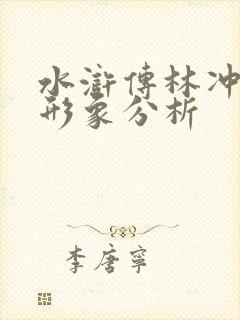 水滸傳林冲
形象分析
李唐寧